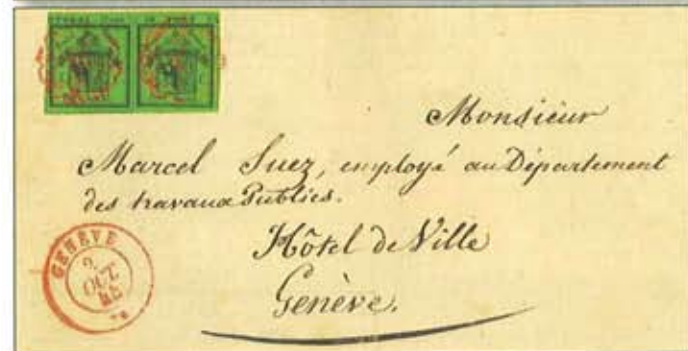 Monsieur
Marcel Suez, employé au Département
des travaux Publics.
Hôtel de Ville
Genève.
GENÈVE
2
OCT